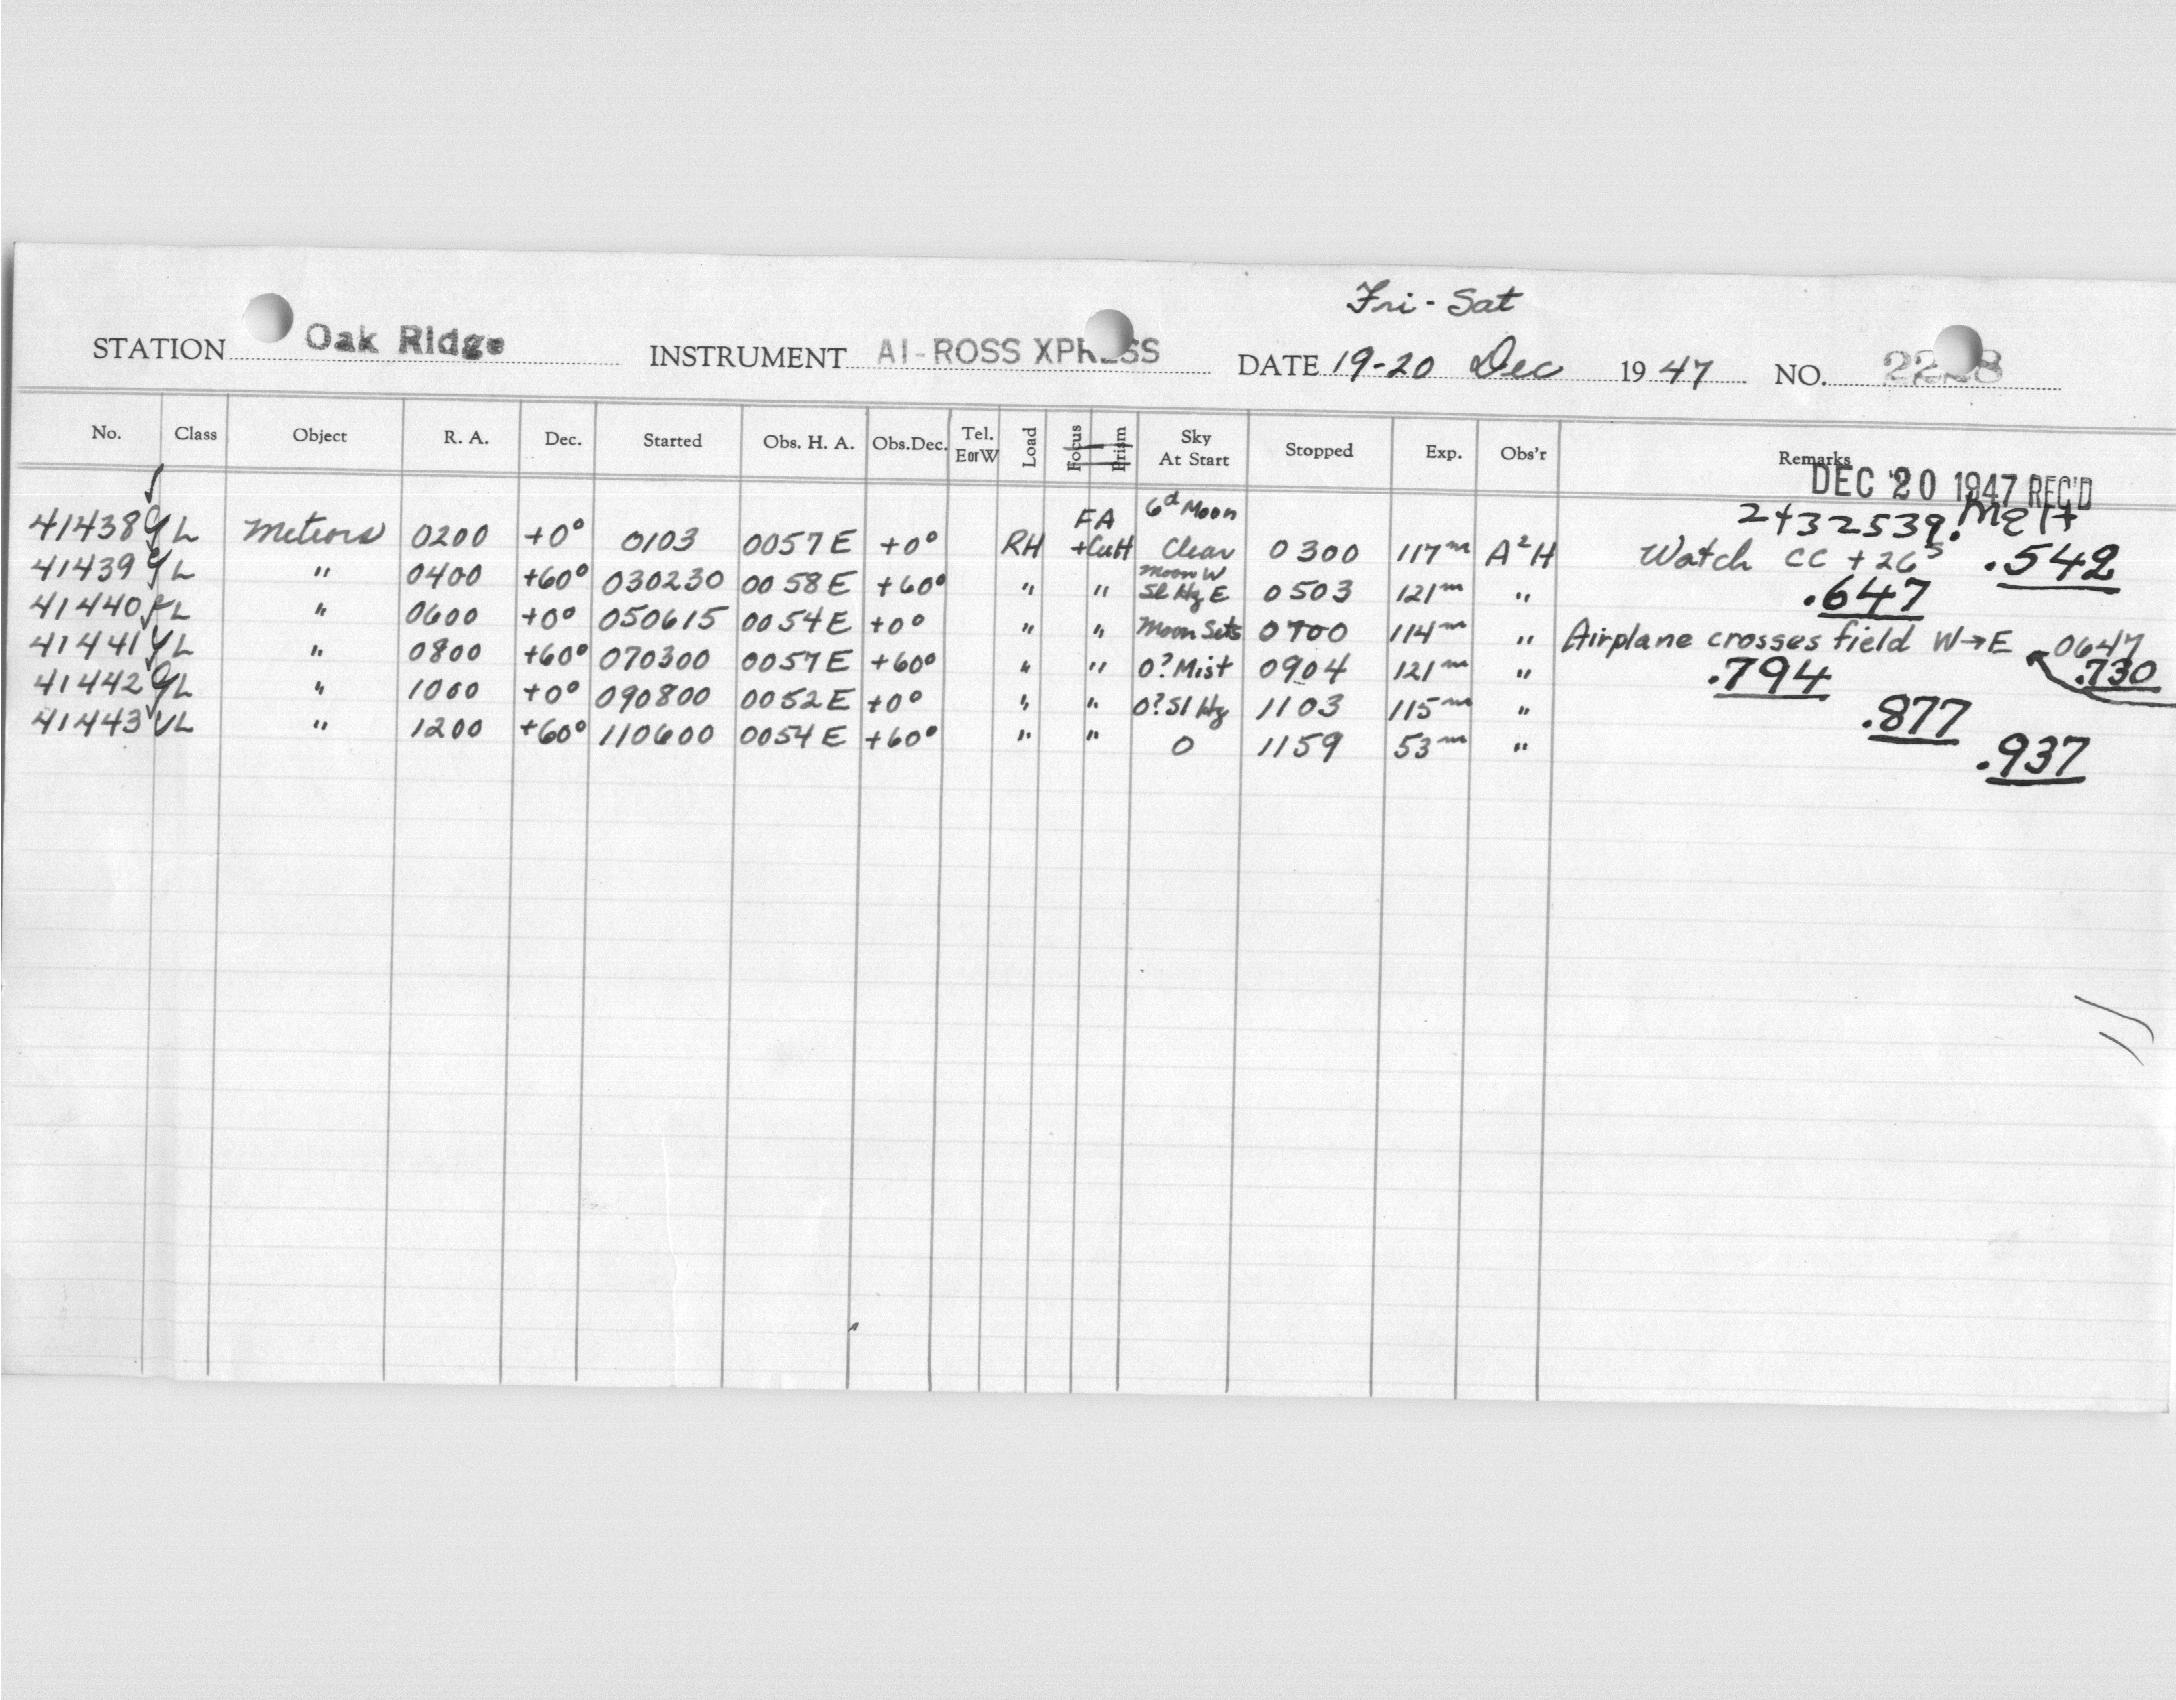 Fri - Sat
STATION Oak Ridge INSTRUMENT AI-ROSS XPRESS DATE 19-20 Dec 1947 NO.
No. Class Object R. A. Dec. Started Obs. H. A. Obs.Dec. Tel. E or W Load Focus Prism Sky At Start Stopped Exp. Obs'r Remarks
DEC 20 1947 REC'D
6d Moon 2432539. Melt
41438 L Meteors 0200 +0° 0103 0057 E +0° RH FA +CutH Clear 0300 117m A²H Watch CC + 26s .542
41439 L " 0400 +60° 030230 0058 E +60° " " Moon W Sl Hz E 0503 121m " .647
41440 L " 0600 +0° 050615 0054 E +0° " " Moon Sets 0700 114m " Airplane crosses field W→E 0647 .730
41441 L " 0800 +60° 070300 0057 E +60° " " 0? Mist 0904 121m " .794
41442 L " 1000 +0° 090800 0052 E +0° " " 0? Sl Hz 1103 115m " .877
41443 L " 1200 +60° 110600 0054 E +60° " " 0 1159 53m " .937